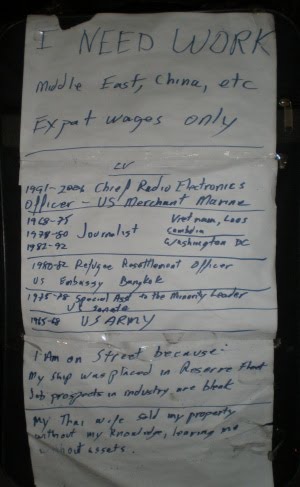 I NEED WORK
Middle East, China, etc
Expat wages only
CV
1991-2006 Chief Radio Electronics
Officer - US Merchant Marine
1968-75 Vietnam, Laos
1978-80 Journalist Cambodia
1982-92 Washington DC
1980-82 Refugee Resettlement Officer
US Embassy Bangkok
1975-78 Special Asst to the Minority Leader
US Senate
1965-68 US ARMY
I Am on Street because:
My ship was placed in Reserve Fleet
Job prospects in industry are bleak
My Thai wife sold my property
without my knowledge, leaving me
without assets.